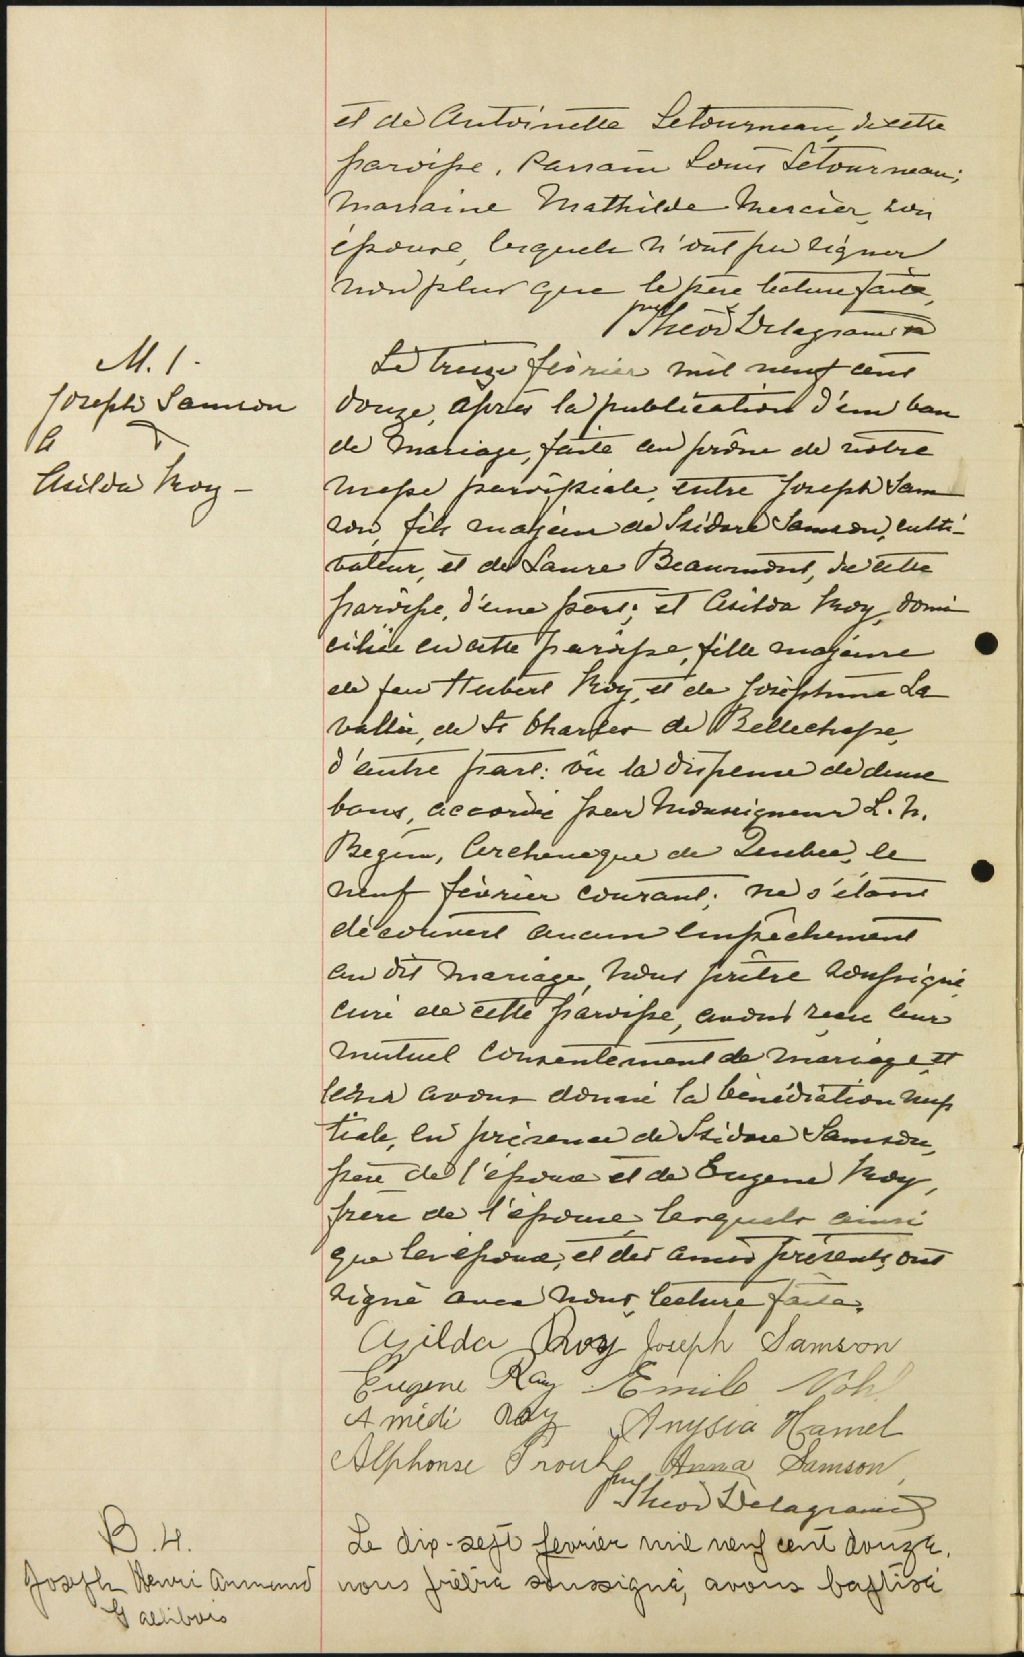 et de Antoinette Letourneau, de cette
paroisse. Parrain Louis Létourneau;
Marraine Mathilde Mercier, son
épouse, lesquels n'ont pu signer
non plus que le père lecture faite.
ptre Théod Delagrave
M. 1.
Joseph Samson
&
Asilda Roy -
Le treize février mil neuf cent
douze, après la publication d'un ban
de mariage, faite au prône de notre
messe paroissiale, entre Joseph Sam
son, fils majeur de Isidore Samson, culti-
vateur, et de Laure Beaumont, de cette
paroisse, d'une part; et Asilda Roy, domi
ciliée en cette paroisse, fille majeure
de feu Hubert Roy, et de Joséphine La
vallée, de St Charles de Bellechasse,
d'autre part: vu la dispense de deux
bans, accordée par Monseigneur L. N.
Bégin, Archevêque de Québec, le
neuf février courant; ne s'étant
découvert aucun empêchement
au dit mariage, nous prêtre soussigné,
curé de cette paroisse, avons reçu leur
mutuel consentement de mariage et
leur avons donné la bénédiction nup
tiale, en présence de Isidore Samson,
père de l'époux et de Eugène Roy,
frère de l'épouse, lesquels ainsi
que les époux, et des amis présents, ont
signé avec nous, lecture faite.
Azilda Roy Joseph Samson
Eugene Roy Emile
Amédi Roy Anysia Hamel
Alphonse Anna Samson
ptre Théod Delagrave
B. 4.
Joseph Henri Armand
Gallibois
Le dix-sept fevrier mil neuf cent douze,
nous prêtre soussigné, avons baptisé